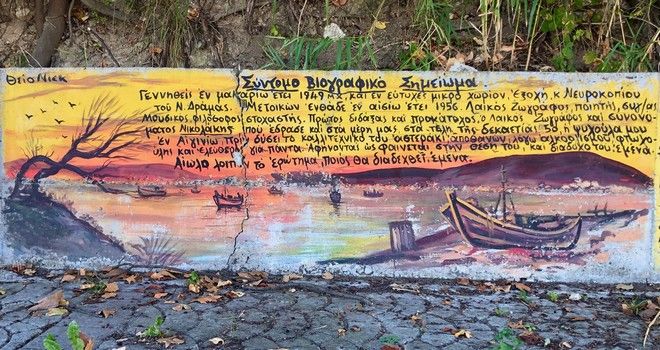 Θείο Nick
Σύντομο Βιογραφικό Σημείωμα.
Γεννηθείς εν μακαρίω έτει 1949 μ.χ, και εν ευτυχεί μικρός χωρίον, Εξοχή, κ Νευροκοπίου
του Ν. Δράμας. Μετοικών ενθάδε εν αισίω έτει 1956. Λαϊκός Ζωγράφος, ποιητής, συγ/ας
Μουσικός φιλόσοφος στοχαστής. Πρώτος διδάξας και προκάτοχος, ο Λαϊκός Ζωγράφος και συνονό
ματος Νικολάκης που έδρασε και στα μέρη μας στα τέλη της δεκαετίας 50, η ψυχούλα μου
εν Αιγινίω πριν δύσει το καλλιτεχνικό του αστεράκι, αποθανών λόγω
ύλη και ελεύθερος για πάντα. Αφήνοντας ως φαίνεται στην θέση του, και διάδοχό του: εμένα.
Αίωλο λοιπόν το ερώτημα, ποιος θα διαδεχθεί: εμένα.